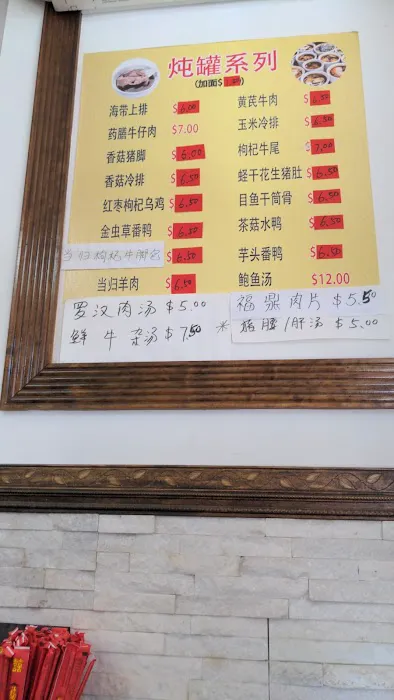 炖罐系列
(加面$1.50)
海带上排 $6.00
药膳牛仔肉 $7.00
香菇猪脚 $6.00
香菇冷排 $6.50
红枣枸杞乌鸡 $6.50
金虫草番鸭 $6.50
当归枸杞牛脚包 $6.50
当归羊肉 $6.50
罗汉肉汤 $5.00
鲜牛杂汤 $7.50
黄芪牛肉 $6.50
玉米冷排 $6.50
枸杞牛尾 $7.00
蛏干花生猪肚 $6.50
目鱼干筒骨 $6.50
茶菇水鸭 $6.50
芋头番鸭 $6.50
鲍鱼汤 $12.00
福鼎肉片 $5.50
猪腰/肝汤 $5.00